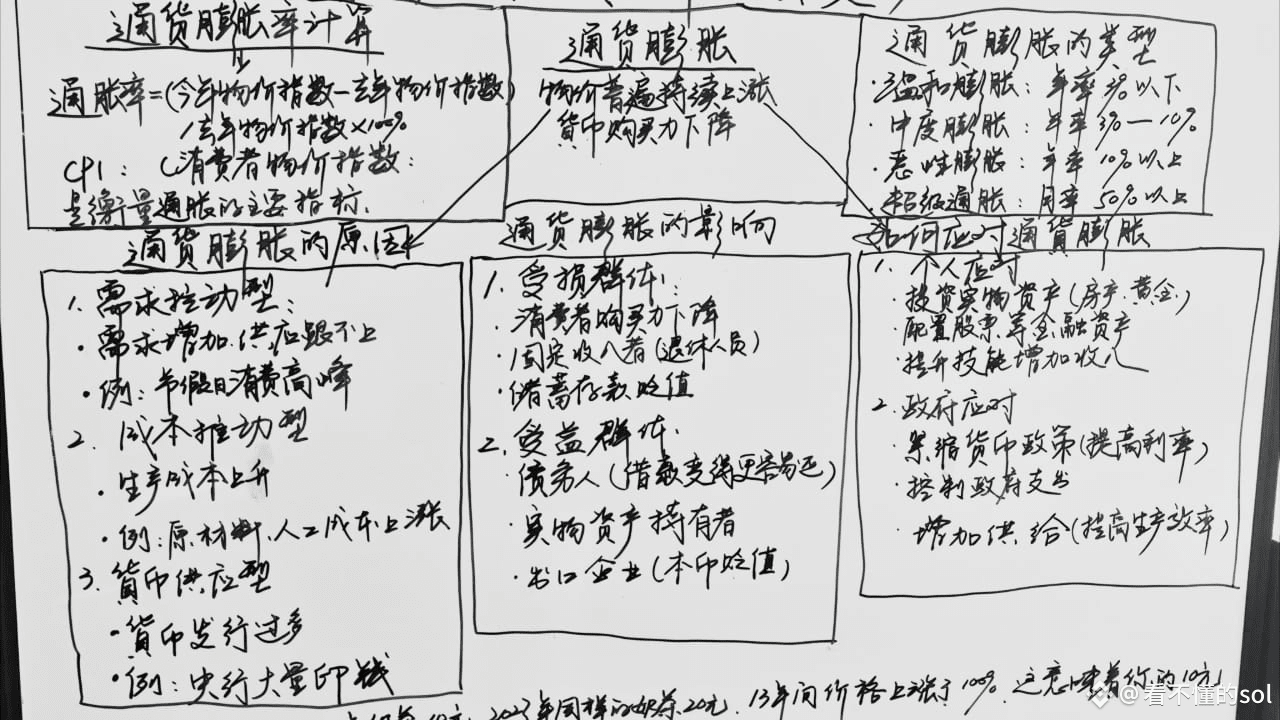 通货膨胀率计算
通胀率=(今年物价指数-去年物价指数)
/去年物价指数×100%
CPI:(消费者物价指数:
是衡量通胀的主要指标.
通货膨胀
物价普遍持续上涨
货币购买力下降
通货膨胀的类型
·温和膨胀:年率3%以下
·中度膨胀:年率3%—10%
·恶性膨胀:年率10%以上
·超级通胀:月率50%以上
通货膨胀的原因
1.需求拉动型:
·需求增加.供应跟不上
·例:节假日消费高峰
2.成本推动型
·生产成本上升
·例:原材料.人工成本上涨
3.货币供应型
·货币发行过多
·例:央行大量印钱
通货膨胀的影响
1.受损群体:
·消费者购买力下降
·固定收入者(退休人员)
·储蓄存款贬值
2.受益群体.
·债务人(借款变得更容易还)
·实物资产持有者
·出口企业(本币贬值)
如何应对通货膨胀
1.个人应对
·投资实物资产(房产.黄金.)
·配置股票等金融资产
·提升技能增加收入
2.政府应对
·紧缩货币政策(提高利率)
·控制政府支出
·增加供给(提高生产效率)
10元,2023年同样的奶茶20元.13年间价格上涨了100%.这意味着你的10元
@看不懂的sol